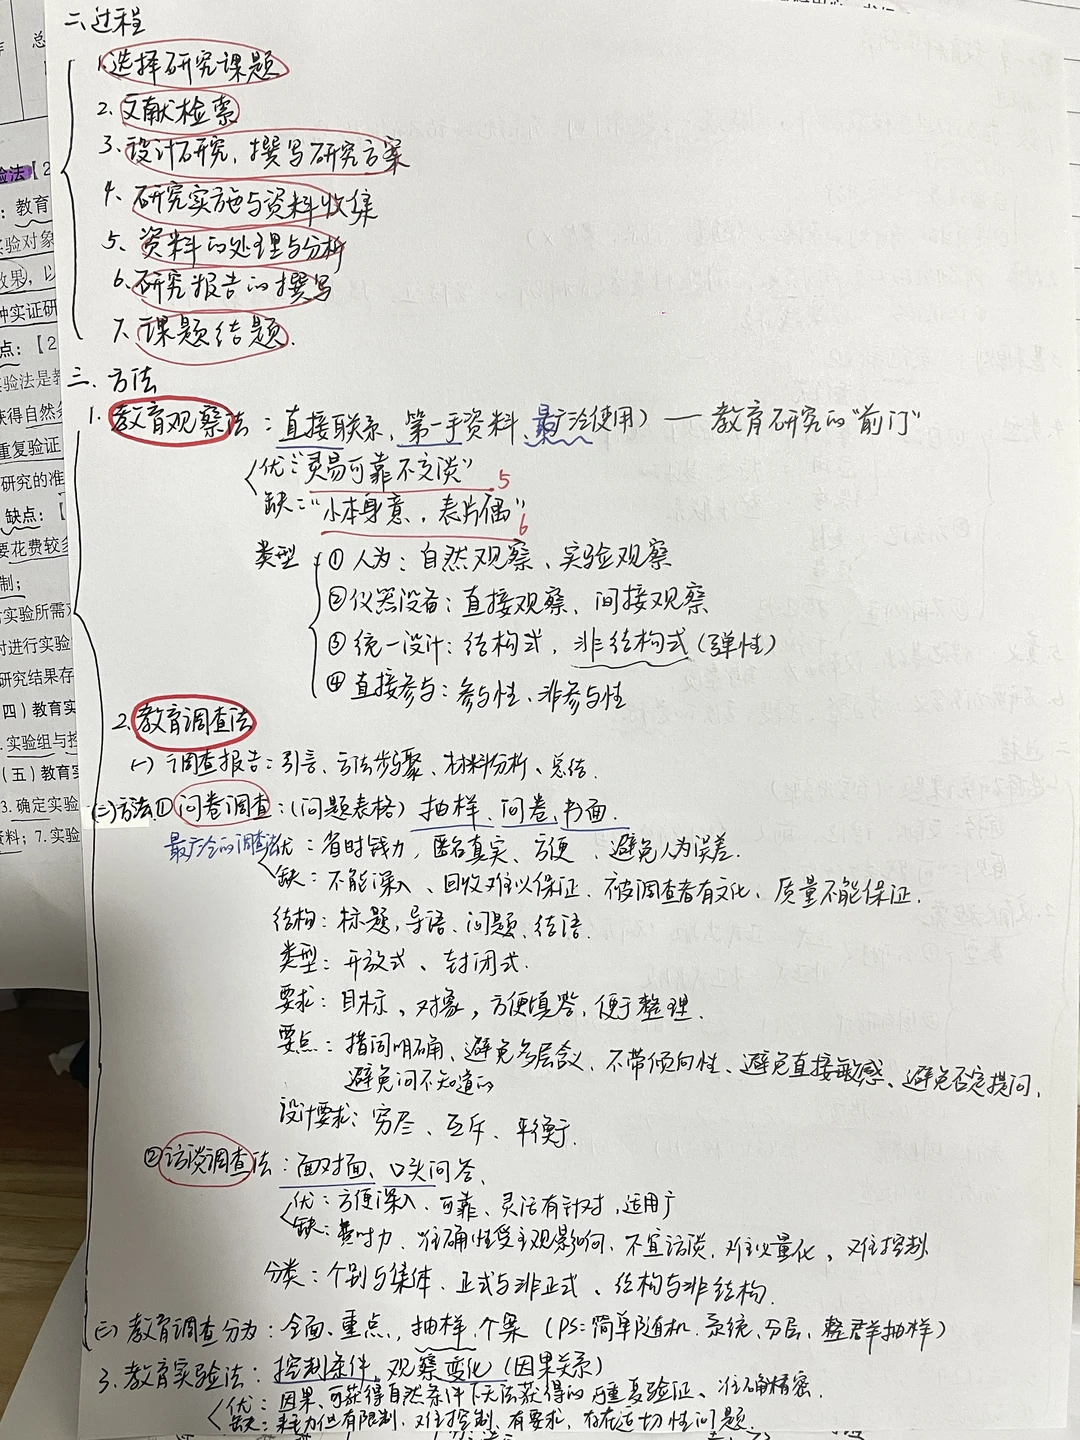 二、过程
1.选择研究课题
2.文献检索
3、设计研究，撰写研究方案
4、研究实施与资料收集
5、资料的处理与分析
6、研究报告的撰写
7、课题结题.
三、方法
1.教育观察法：直接联系、第一手资料、最广泛使用）— 教育研究的“前门”
优：“灵易可靠不交谈” 5
缺：“小本身意，表片偶” 6
类型 ①人为：自然观察、实验观察
②仪器设备：直接观察、间接观察
③统一设计：结构式，非结构式(弹性)
④直接参与：参与性、非参与性
2、教育调查法
(一)调查报告：引言、方法步骤、材料分析、总结.
(二)方法①问卷调查：(问题表格) 抽样、问卷、书面.
最广泛的调查法 优：省时钱力，匿名真实、方便、避免人为误差.
缺：不能深入、回收难以保证、被调查者有文化、质量不能保证.
结构：标题，导语、问题、结语.
类型：开放式、封闭式.
要求：目标，对象，方便填答，便于整理.
要点：措词明确、避免多层含义、不带倾向性、避免直接敏感、避免否定提问.
避免问不知道的
设计要求：穷尽、互斥、平衡.
②访谈调查法：面对面、口头问答.
优：方便深入、可靠、灵活有针对，适用广
缺：费时力、准确性受主观影响、不宜访谈、难以量化，难控制
分类：个别与集体、正式与非正式、结构与非结构.
(三)教育调查分为：全面、重点，抽样、个案（PS：简单随机、系统、分层、整群抽样）
3、教育实验法：控制条件、观察变化（因果关系）
优：因果、可获得自然条件下无法获得的、可重复验证、准确精密.
缺：耗力但有限制、难控制、有要求，存在适切性问题.
验法【2
：教育
实验对象
效果，以
种实证研
点：【2
实验法是教
获得自然条
重复验证
研究的准
缺点：【
要花费较多
制；
实验所需
时进行实验
研究结果存
四）教育实
实验组与控
（五）教育实
3.确定实验
资料；7.实验